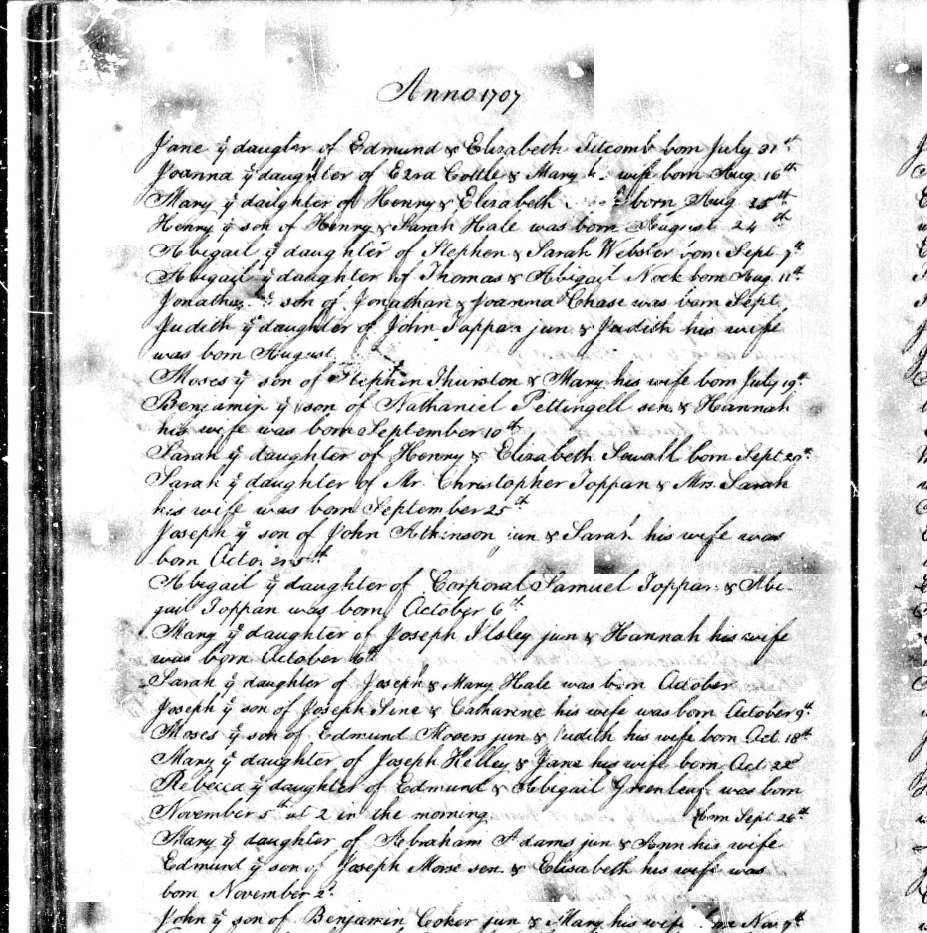 Anno 1707
Jane ye daugter of Edmund & Elisabeth Titcomb born July 31st
Joanna ye daughter of Ezra Cottle & Mary h. wife born Aug 16th
Mary ye daughter of Henry & Elizabeth born Aug 25th
Henry ye son of Henry & Sarah Hale was born August 24th
Abigail ye daughter of Stephen & Sarah Webster born Sept 7th
Abigail ye daughter of Thomas & Abigail Nock born Aug 11th
Jonathan ye son of Jonathan & Joanna Chase was born Sept
Judith ye daughter of John Toppan jun & Judith his wife
was born August
Moses ye son of Stephen Thurston & Mary his wife born July 19th
Benjamin ye son of Nathaniel Pettingell sen & Hannah
his wife was born September 10th
Sarah ye daughter of Henry & Elizabeth Sewall born Sept 20th
Sarah ye daughter of Mr. Christopher Toppan & Mrs. Sarah
his wife was born September 25th
Joseph ye son of John Atkinson jun & Sarah his wife was
born 5th
Abigail ye daughter of Corporal Samuel Toppan & Abi-
gail Toppan was born October 6th
Mary ye daughter of Joseph Ilsley jun & Hannah his wife
was born October 16th
Sarah ye daughter of Joseph & Mary Hale was born October
Joseph ye son of Joseph & Catharine his wife was born October 9th
Moses ye son of Edmund Moores jun & Judith his wife born Oct 18th
Mary ye daughter of Joseph Kelley & Jane his wife born Oct 22d
Rebecca ye daughter of Edmund & Abigail Greenleaf was born
November 5th at 2 in the morning (born Sept 26th
Mary ye daughter of Abraham Adams jun & Ann his wife
Edmund ye son of Joseph Morse sen & Elisabeth his wife was
born November 2d
John ye son of Benjamin Cooker jun & Mary his wife Nov 9th